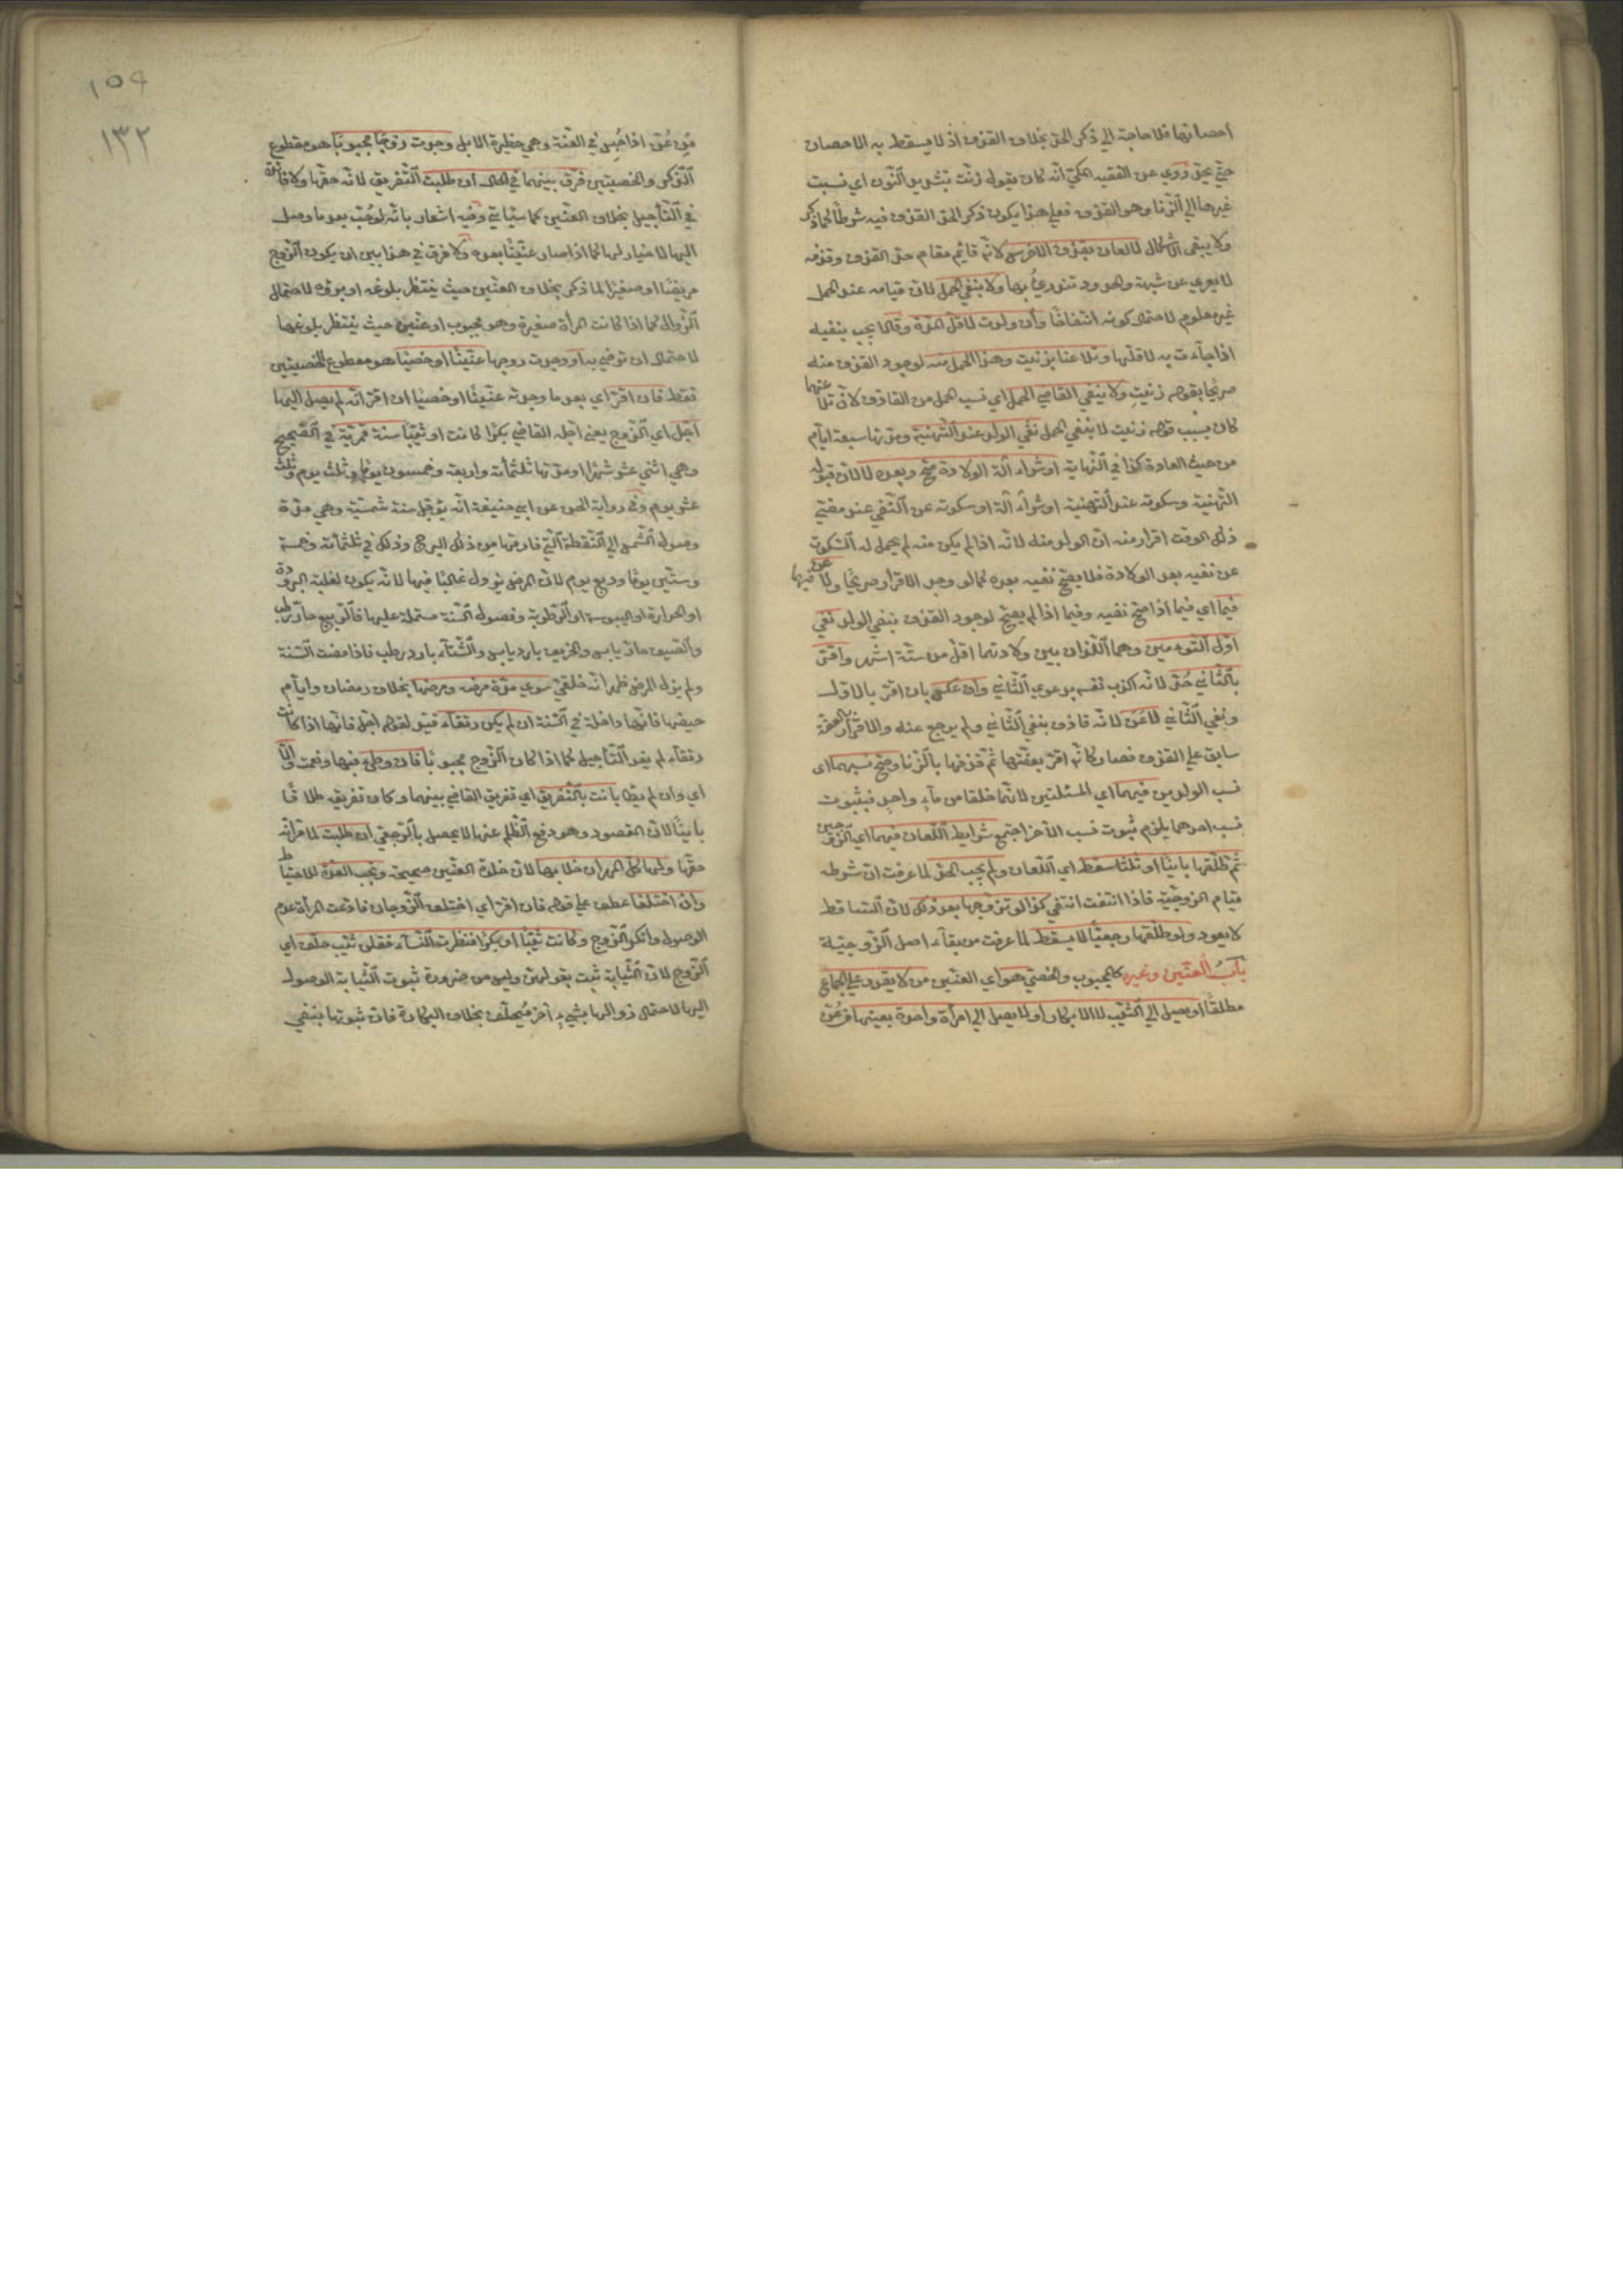 احصانها فلا حاجة الي ذكر الحد بخلاف القذف اذ لا يسقط به الاحصان
حتي يحد روي عن الفقيه المكي انه كان يقول زنت بتشديد النون اي نسبت
غيرها الي الزنا وهو القذف فعلي هذا يكون ذكر الحد القذف فيه شرطا كما ذكر
ولا يبقي الاشكال لا لعان بقذف الاخرس لانه قائم مقام حد القذف وقذفه
لا يعري عن شبهة والحدود تندريء بها ولا بنفي الحمل لان قيامه عند الحمل
غير معلوم لاحتمال كونه انتفاخا وان ولدت لاقل المدة وقالا يجب بنفيه
اذا جاءت به لاقلها وتلاعنا بزنيت وهذا الحمل منه لوجود القذف منه
صريحا بقوله زنيت ولا ينفي القاضي الحمل اي نسب الحمل من القاذف لان تلاعنهما
كان بسبب قوله زنيت لا بنفي الحمل نفي الولد عند التهنية ومدتها سبعة ايام
من حيث العادة كذا في النهاية او شراء الة الولادة صح وبعده لا لان قبوله
التهنية وسكوته عند التهنية او شراء الة او سكوته عن النفي عند مضي
ذلك الوقت اقرار منه ان الولد منه لانه اذا لم يكن منه لم يحمل له السكوت
عن نفيه بعد الولادة فلا يصح نفيه بعده كما لو وجد الاقرار صريحا ولاعن فيهما
فيما اي فيما اذا صح نفيه وفيما اذا لم يصح لوجود القذف بنفي الولد نفي
اول التوءمين وهما اللذان بين ولادتهما اقل من ستة اشهر واقر
بالثاني حد لانه اكذب نفسه بدعوي الثاني وان عكس بان اقر بالاول
ونفي الثاني لاعن لانه قاذف بنفي الثاني ولم يرجع عنه والاقرار بالعفة
سابق علي القذف فصار كانه اقر بعفتها ثم قذفها بالزنا وصح نسبهما اي
نسب الولدين فيهما اي المسئلتين لانهما خلقا من ماء واحد فبثبوت
نسب احدهما يلزم ثبوت نسب الاخر اجتمع شرايط اللعان فيهما اي الزوجين
ثم طلقها باينا او ثلثا سقط اي اللعان ولم يجب الحد لما عرفت ان شرطه
قيام الزوجية فاذا انتفت انتفي كذا لو تزوجها بعد ذلك لان الساقط
لا يعود ولو طلقها رجعيا لا يسقط لما عرفت من بقاء اصل الزوجية
باب العنين وغيره كالمجبوب والخصي هو اي العنين من لا يقدر علي الجماع
مطلقا او يصل الي الثيب لا الابكار او لا يصل الي امرأة واحدة بعينها من عن
١٥٩
١٣٢
من عن اذا حبس في العنة وهي حظيرة الابل وجدت زوجا مجبوبا هو مقطوع
الذكر والخصيتين فرق بينهما في الحال ان طلبت التفريق لانه حقها ولا فائدة
في التأجيل بخلاف العنين كما سيأتي وفيه اشعار بانه لو جب بعد ما وصل
اليها لا خيار لها كما اذا صار عنينا بعده ولا فرق في هذا بين ان يكون الزوج
مريضا او صغيرا لما ذكر بخلاف العنين حيث ينتظر بلوغه او برؤه لاحتمال
الزوال كما اذا كانت المرأة صغيرة وهو مجبوب او عنين حيث ينتظر بلوغها
لاحتمال ان ترضي به او وجدت زوجها عنينا او خصيا هو مقطوع الخصيتين
فقط فان اقر اي بعد ما وجدته عنينا او خصيا ان اقر انه لم يصل اليها
اجل اي الزوج يعني اجله القاضي بكرا كانت او ثيبا سنة قمرية في الصحيح
وهي اثني عشر شهرا ومدتها ثلثمائة واربعة وخمسون يوما وثلث يوم وثلث
عشر يوم وفي رواية الحسن عن ابي حنيفة انه يؤجل سنة شمسية وهي مدة
وصول الشمس الي النقطة التي فارقتها من ذلك البرج وذلك في ثلثمائة وخمسة
وستين يوما وربع يوم لان المرض يزول غالبا فيها لانه يكون لغلبة البرودة
او الحرارة او اليبوسة او الرطوبة وفصول السنة مشتملة عليها فالربيع حار رطب
والصيف حار يابس والخريف بارد يابس والشتاء بارد رطب فاذا مضت السنة
ولم يزل المرض ظهر انه خلقي سوي مدة مرضه ومرضها بخلاف رمضان وايام
حيضها فانها داخلة في السنة ان لم يكن رتقاء قيد لقوله اجل فانها اذا كانت
رتقاء لم يفد التأجيل كما اذا كان الزوج مجبوبا فان وطيء فبها ونعمت والا
اي وان لم يطأ بانت بالتفريق اي تفريق القاضي بينهما وكان تفريقه طلاقا
باينا لان المقصود وهو دفع الظلم عنها لا يحصل بالرجعي ان طلبت لما مر انه
حقها ولها كل المهر ان خلا بها لان خلوة العنين صحيحة وتجب العدة للاحتياط
وان اختلفا عطف علي قوله فان اقر اي اختلف الزوجان فادعت المرأة عدم
الوصول وانكر الزوج وكانت ثيبا او بكرا فنظرت النساء فقلن ثيب حلف اي
الزوج لان الثيابة ثبت بقولهن وليس من ضرورة ثبوت الثيابة الوصول
اليها لاحتمال زوالها بشيء اخر فيحلف بخلاف البكارة فان ثبوتها ينفي